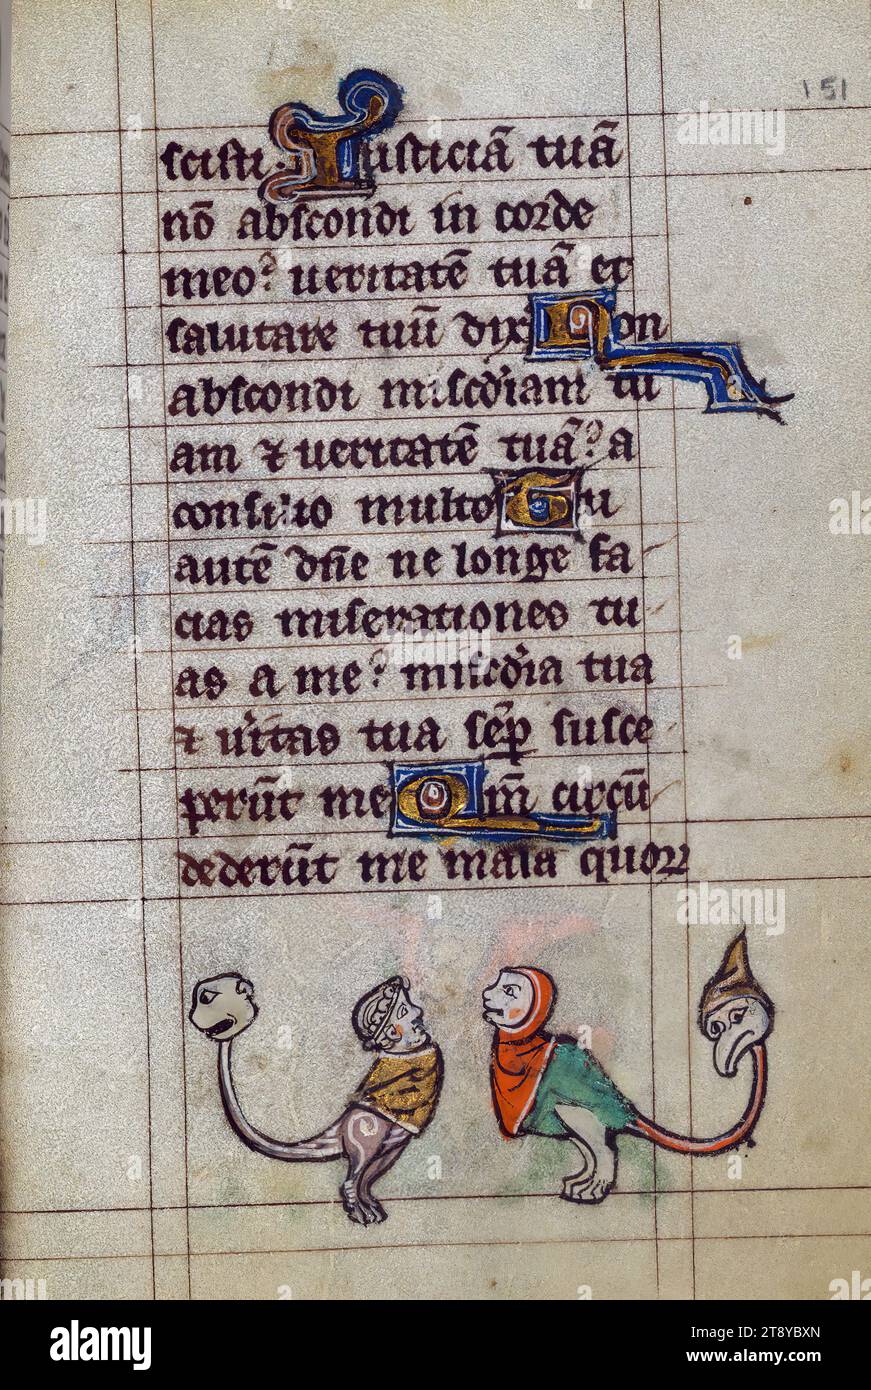 151
scisti. Iusticiā tuā
nō abscondi in corde
meo? ueritatē tuā et
salutare tuū dixi Non
abscondi misc̄diam tu
am ⁊ ueritatē tuā? a
consilio multo Tu
autē dn̄e ne longe fa
cias miserationes tu
as a me? misc̄dia tua
⁊ uītas tua sēp susce
perūt me Qm̄ circū
dederūt me mala quoꝝ
alamy
Image ID: 2T8YBXN
www.alamy.com